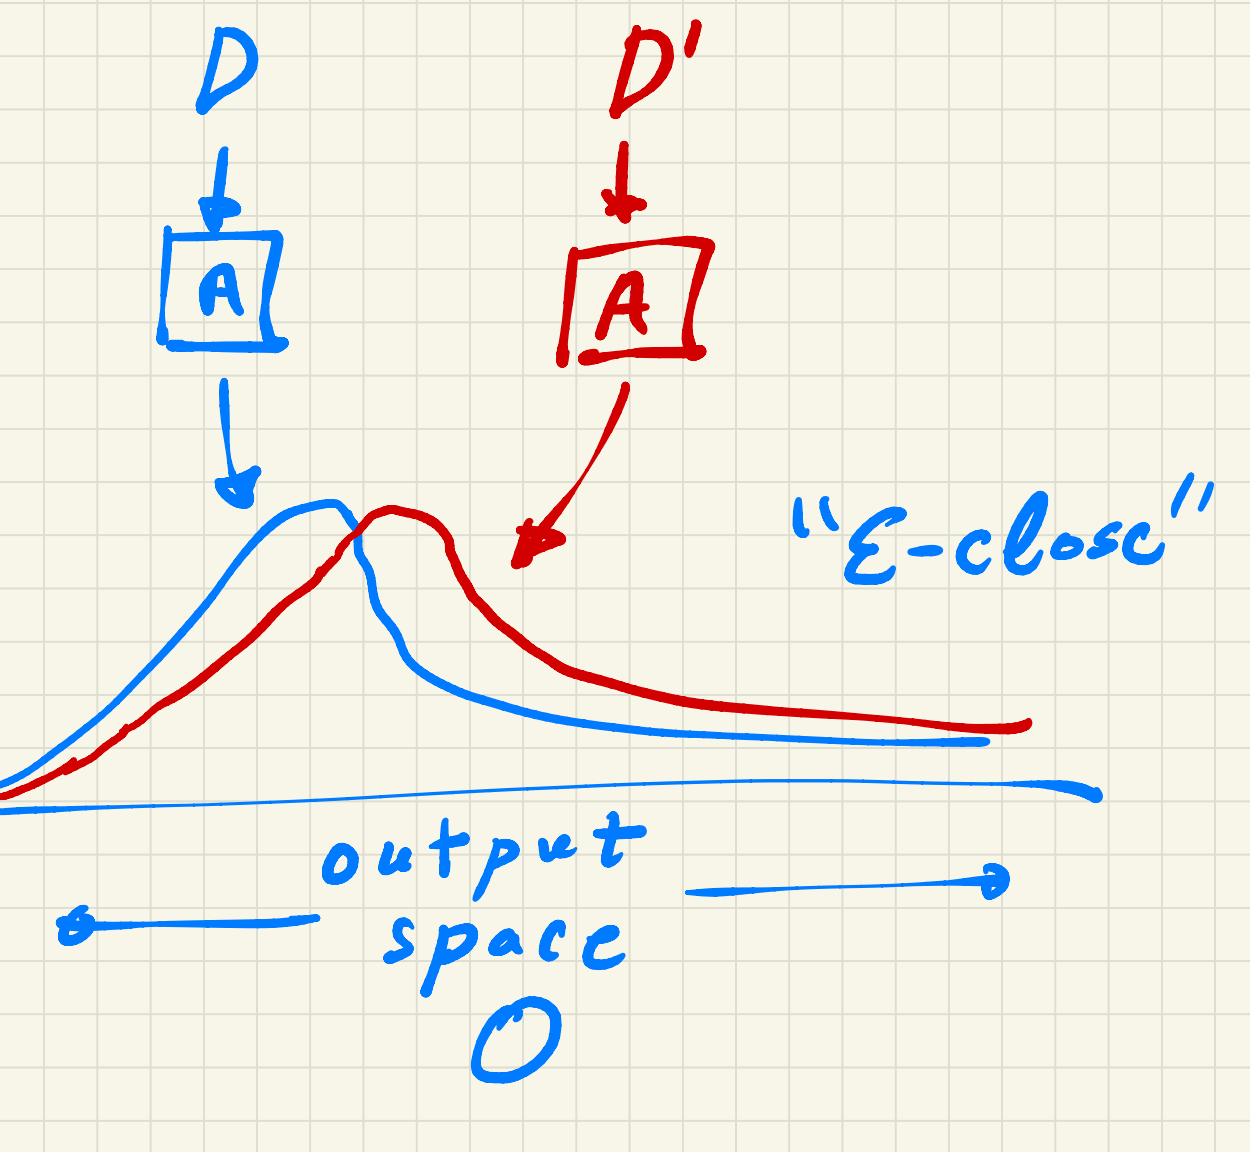 D D'
A A
"ε-close"
output
space
O